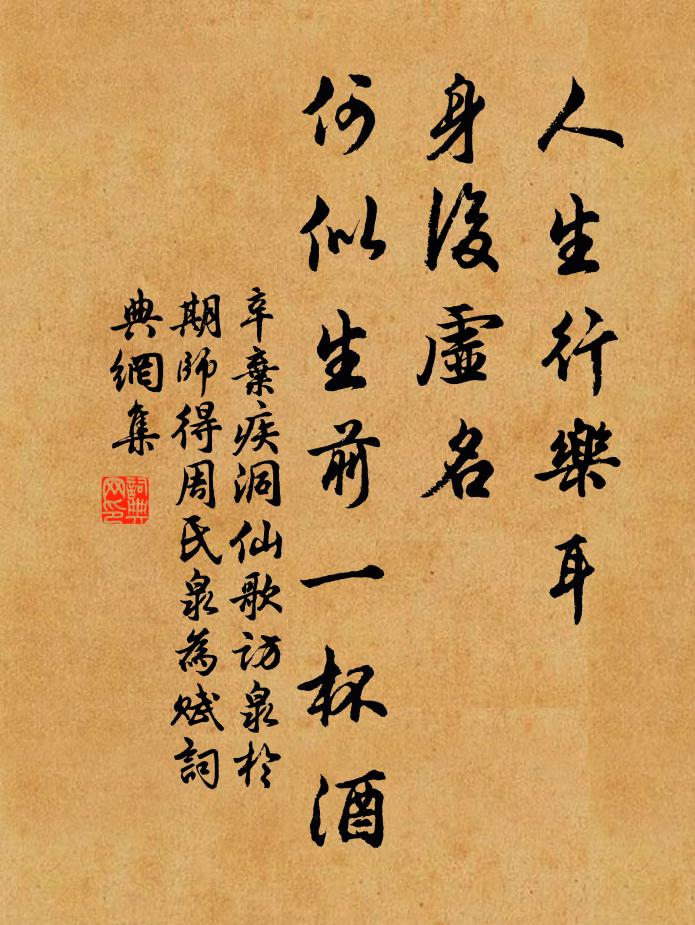 人生行樂耳
身後虛名
何似生前一杯酒
辛棄疾洞仙歌訪泉於
期師得周氏泉為賦詞
典網集
詞典
网印